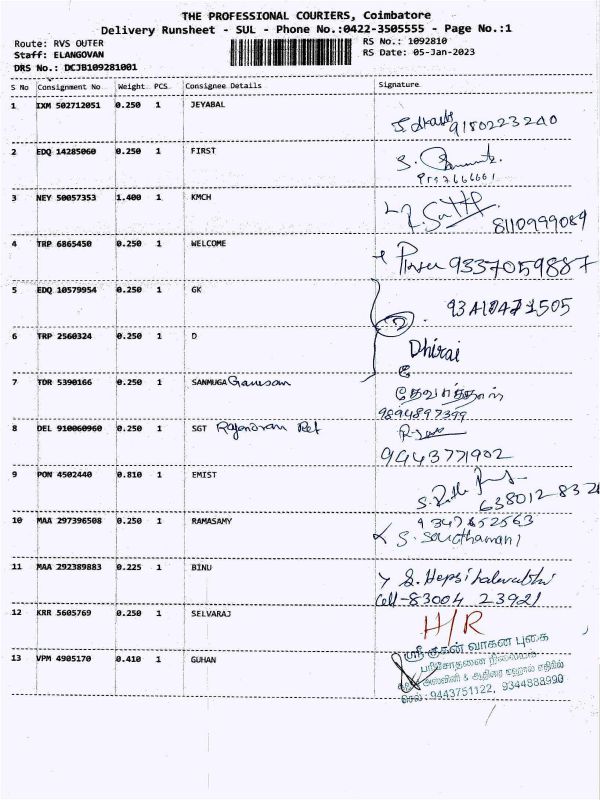 THE PROFESSIONAL COURIERS, Coimbatore
Delivery Runsheet - SUL - Phone No.:0422-3505555 - Page No.:1
Route: RVS OUTER
RS No.: 1092810
Staff: ELANGOVAN
RS Date: 05-Jan-2023
DRS No.: DCJB109281001
S No Consignment No Weight PCS Consignee Details Signature
1 IXM 502712051 0.250 1 JEYABAL
9180223240
2 EDQ 14285060 0.250 1 FIRST
3 NEY 50057353 1.400 1 KMCH
8110999089
4 TRP 6865450 0.250 1 WELCOME
9337059887
5 EDQ 10579954 0.250 1 GK
6 TRP 2560324 0.250 1 D
Dhirai
7 TDR 5390166 0.250 1 SANMUGA Ganesan
9894897399
8 DEL 910060960 0.250 1 SGT
9443771902
9 PON 4502440 0.810 1 EMIST
10 MAA 297396508 0.250 1 RAMASAMY
9347652563
S. Southamani
11 MAA 292389883 0.225 1 BINU
Cell-83004 23921
12 KRR 5605769 0.250 1 SELVARAJ
H/R
13 VPM 4905170 0.410 1 GUHAN
ஸ்ரீ குகன் வாகன புகை
பரிசோதனை நிலையம்
செல்: 9443751122, 9344888990